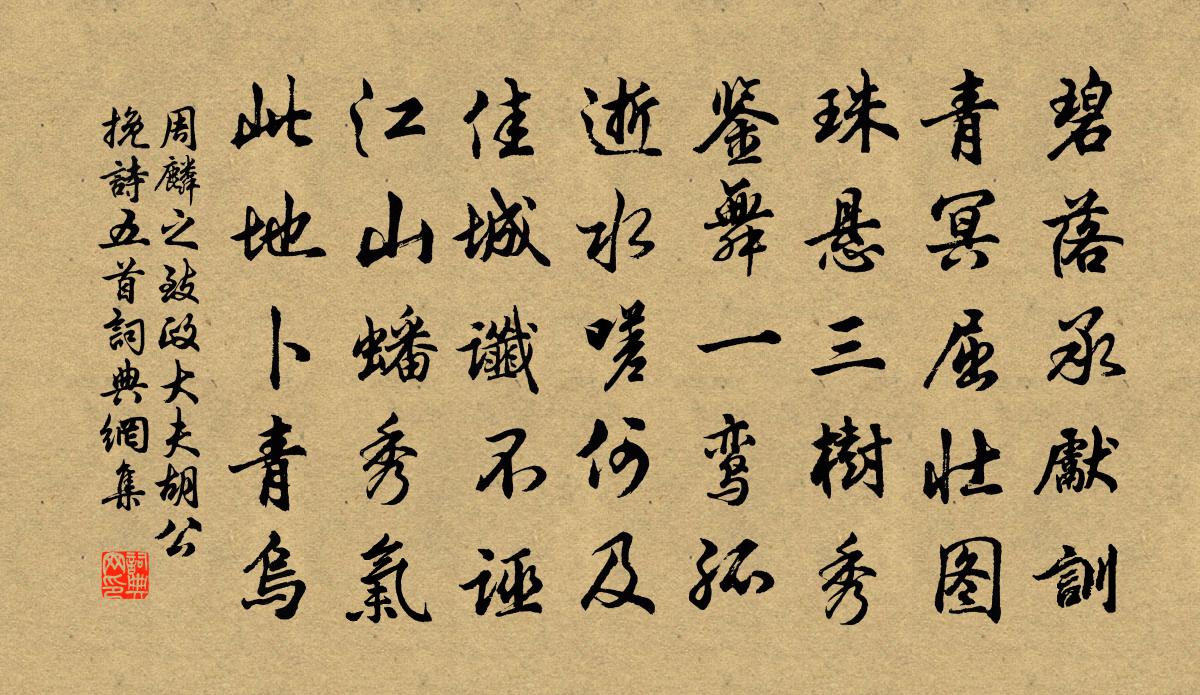 碧落承獻訓
青冥屈壯图
珠悬三樹秀
鉴舞一鸾孤
逝水嗟何及
佳城谶不诬
江山蟠秀氣
此地卜青烏
周麟之致政大夫胡公
挽詩五首詞典網集
詞典网印